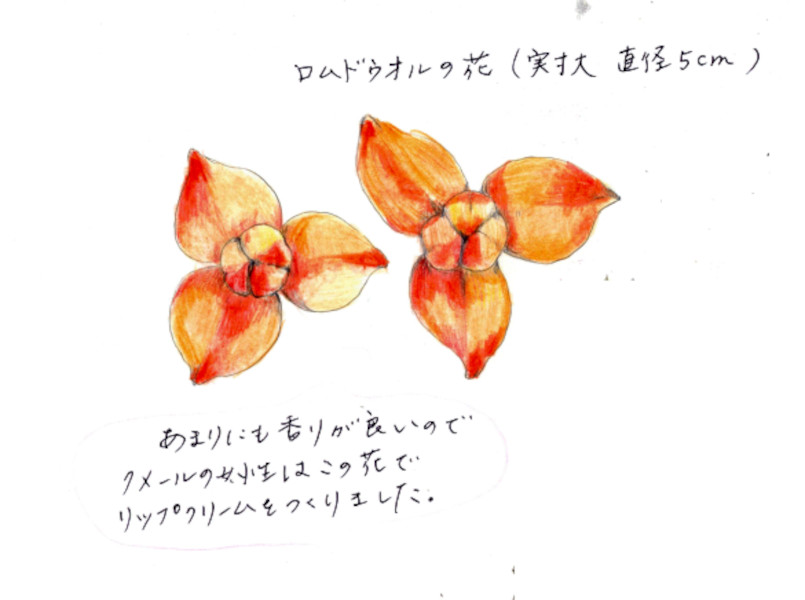 ロムドゥオルの花（実寸大 直径5cm）
あまりにも香りが良いので
クメールの女性はこの花で
リップクリームをつくりました。